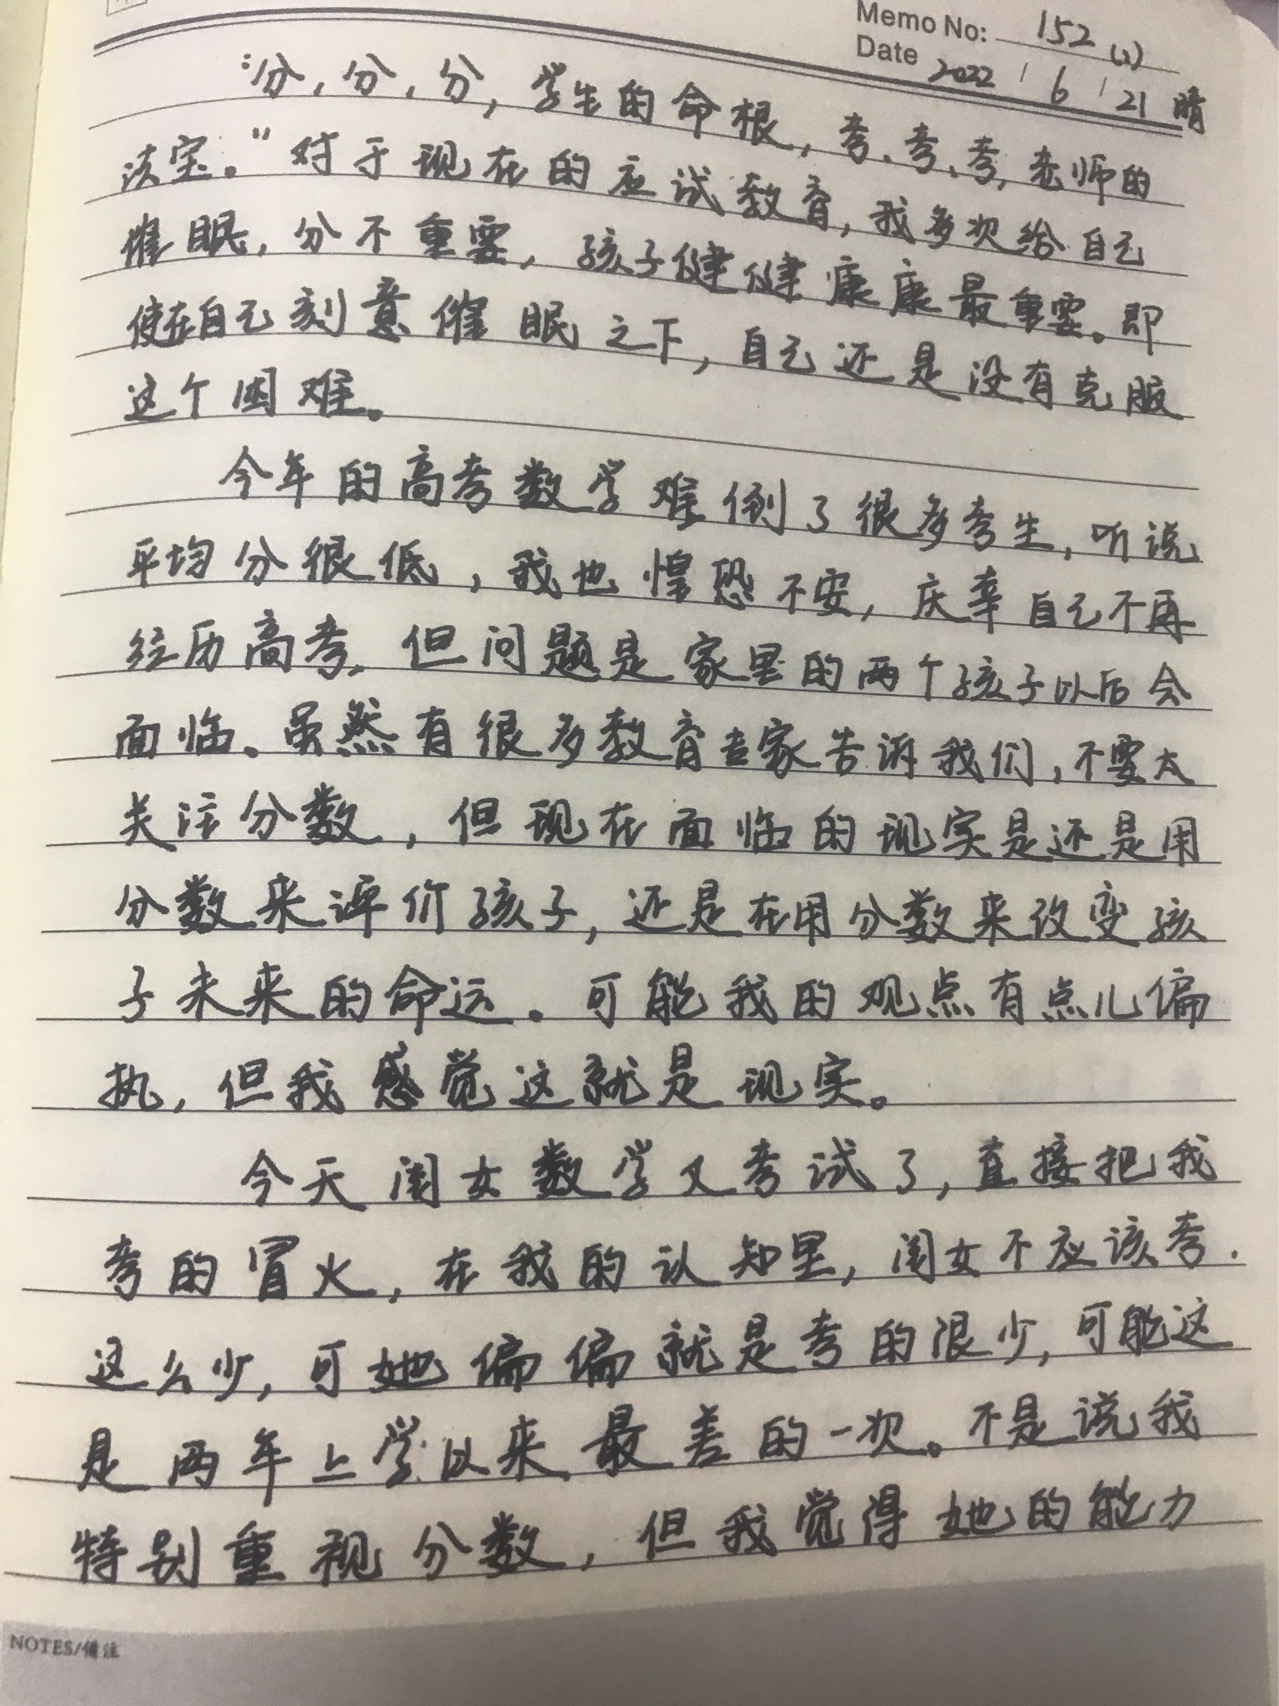 Memo No: 152 (1)
Date 2022 / 6 / 21 晴
"分,分,分,学生的命根,考、考、考,老师的
法宝。"对于现在的应试教育,我多次给自己
催眠,分不重要,孩子健健康康最重要。即
使在自己刻意催眠之下,自己还是没有克服
这个困难。
今年的高考数学难倒了很多考生,听说
平均分很低,我也惶恐不安,庆幸自己不再
经历高考,但问题是家里的两个孩子以后会
面临。虽然有很多教育专家告诉我们,不要太
关注分数,但现在面临的现实是还是用
分数来评价孩子,还是在用分数来改变孩
子未来的命运。可能我的观点有点儿偏
执,但我感觉这就是现实。
今天闺女数学又考试了,直接把我
考的冒火,在我的认知里,闺女不应该考
这么少,可她偏偏就是考的很少,可能这
是两年上学以来最差的一次。不是说我
特别重视分数,但我觉得她的能力
NOTES/备注